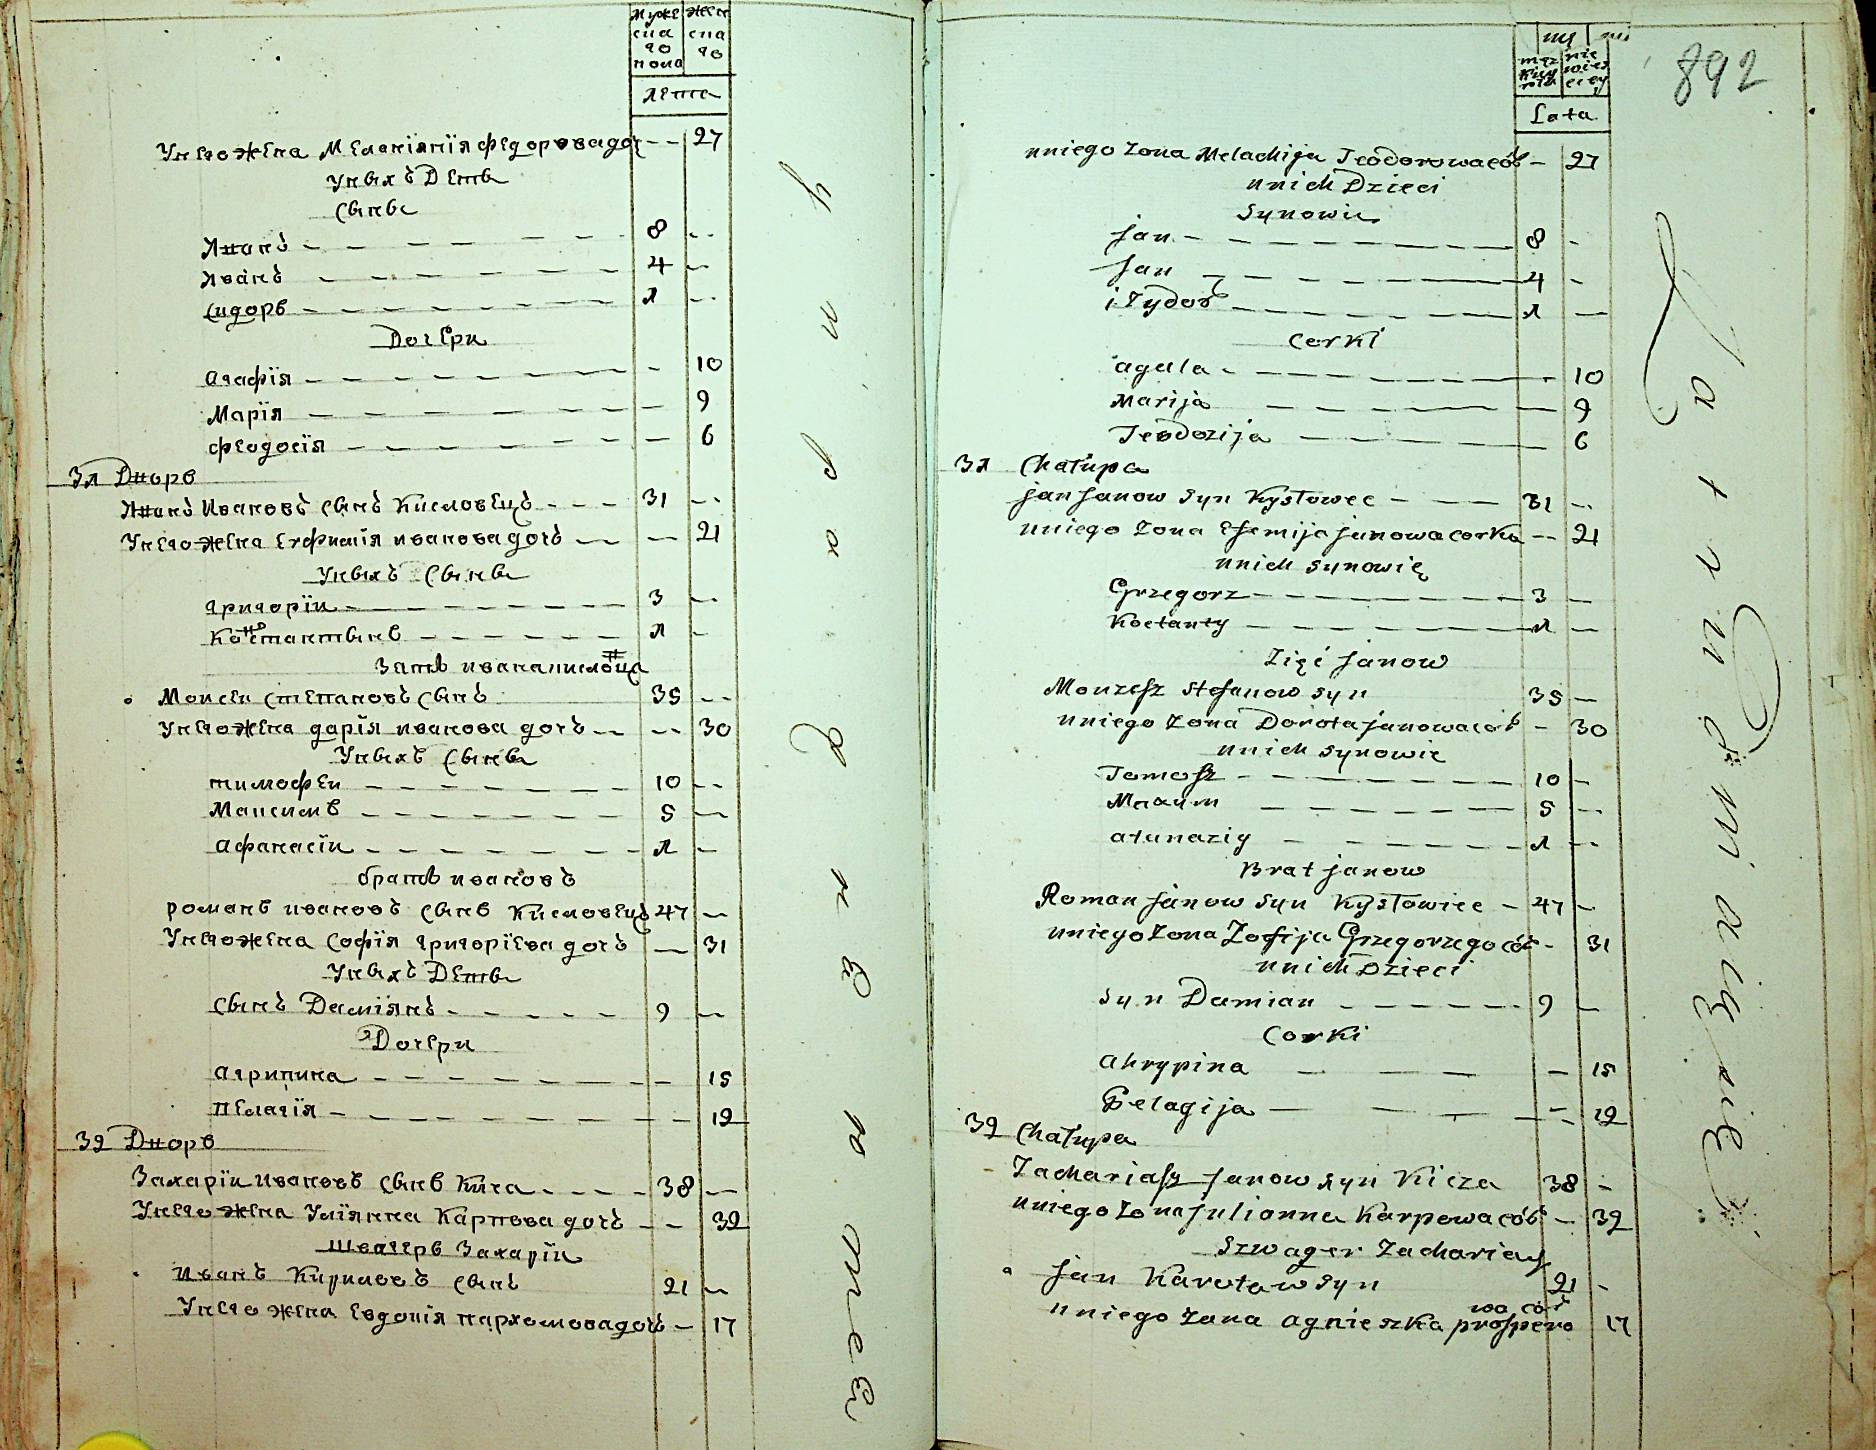 Муже
ска
го
пола
женска
го
Лета
Унего жена Меланїя Федорова доч -- 27
Унихъ Дети
Сыны
Иванъ 8
Иванъ 4
Сидоръ 1
Дочери
Агафїя 10
Марїя 9
Феодосїя 6
31 Дворъ
Иванъ Ивановъ сынъ Кисловецъ 31
Унего жена Ефимїя иванова дочъ 21
Унихъ Сыны
григорїи 3
Констактынъ 1
Зять ивана
Моисеи Степановъ сынъ 35
Унего жена дарїя иванова дочъ 30
Унихъ Сыны
тимофеи 10
Максимъ 5
афанасїи 1
братъ ивановъ
романъ ивановъ сынъ Кисловецъ 47
Унего жена Софїя григорїева дочъ 31
Унихъ Дети
сынъ Дамїянъ 9
Дочери
агрипина 15
Пелагїя 12
32 Дворъ
Захарїи ивановъ сынъ Кича 38
Унего жена Улїянна Карпова дочъ 32
швагеръ Захарїи
иванъ Кириловъ сынъ 21
Унего жена Евдокїя пархомова дочъ 17
892
męz
kiey
niewies
ciey
Lata
uniego żona Melachija Teodorowa cór 27
unich Dzieci
Synowie
Jan 8
Jan 4
iZydor 1
Corki
agata 10
Marija 9
Teodozija 6
31 Chałupa
Jan Janow Syn Kysłowec 31
uniego żona Efemija Janowa corka 21
unich Synowie
Grzegorz 3
Kostanty 1
Zięć Janow
Mouzesz Stefanow syn 35
uniego żona Dorota Janowa cór 30
unich Synowie
Tomasz 10
Maxym 5
atanaziy 1
Brat Janow
Roman Janow Syn Kysłowiec 47
uniego żona Zofija Grzegorzego cór 31
unich Dzieci
Syn Damian 9
Corki
ahrypina 15
Pelagija 12
32 Chałupa
Zachariasz Janow syn Kicza 38
uniego żona Julianna Karpowa cór 32
Szwager Zachariasz
Jan Karołow syn 21
uniego żona agnieszka prospero
wa cór 17